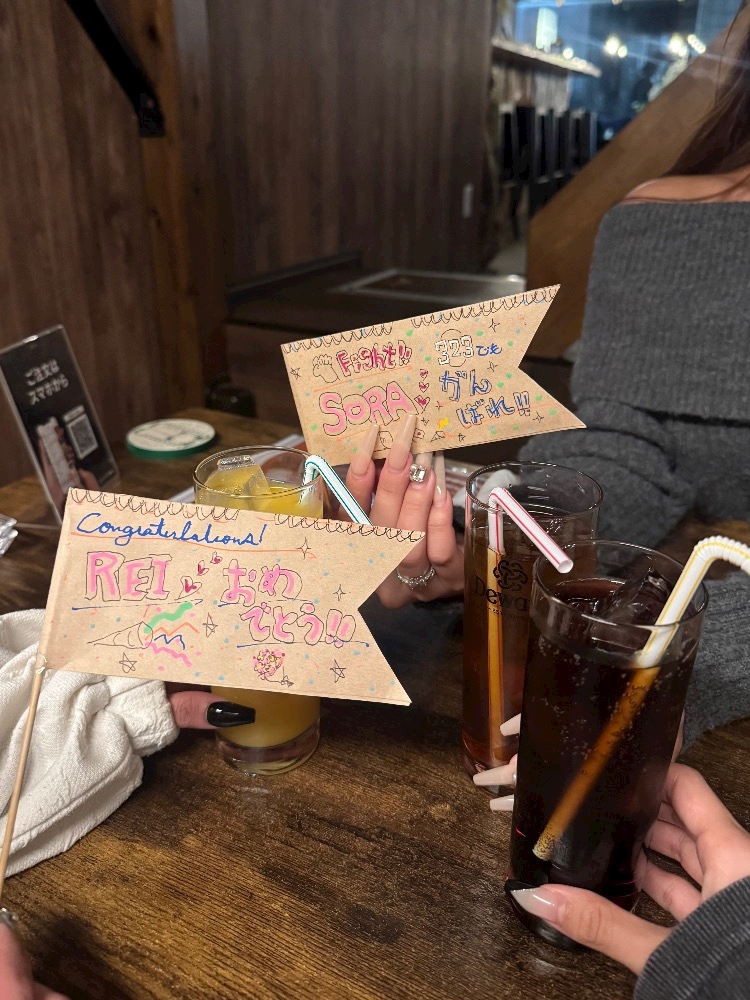 ご注文は
スマホから
Fight!!
SORA
323でも
がん
ばれ!!
Congratulations!
REI おめ
でとう!!
Dewa